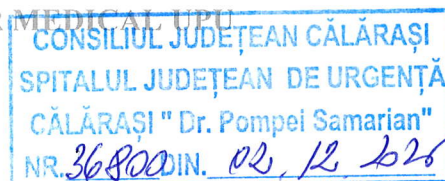 MEDICAL UPU
CONSILIUL JUDEȚEAN CĂLĂRAȘI
SPITALUL JUDEȚEAN DE URGENȚĂ
CĂLĂRAȘI " Dr. Pompei Samarian"
NR. 36800 DIN. 02. 12